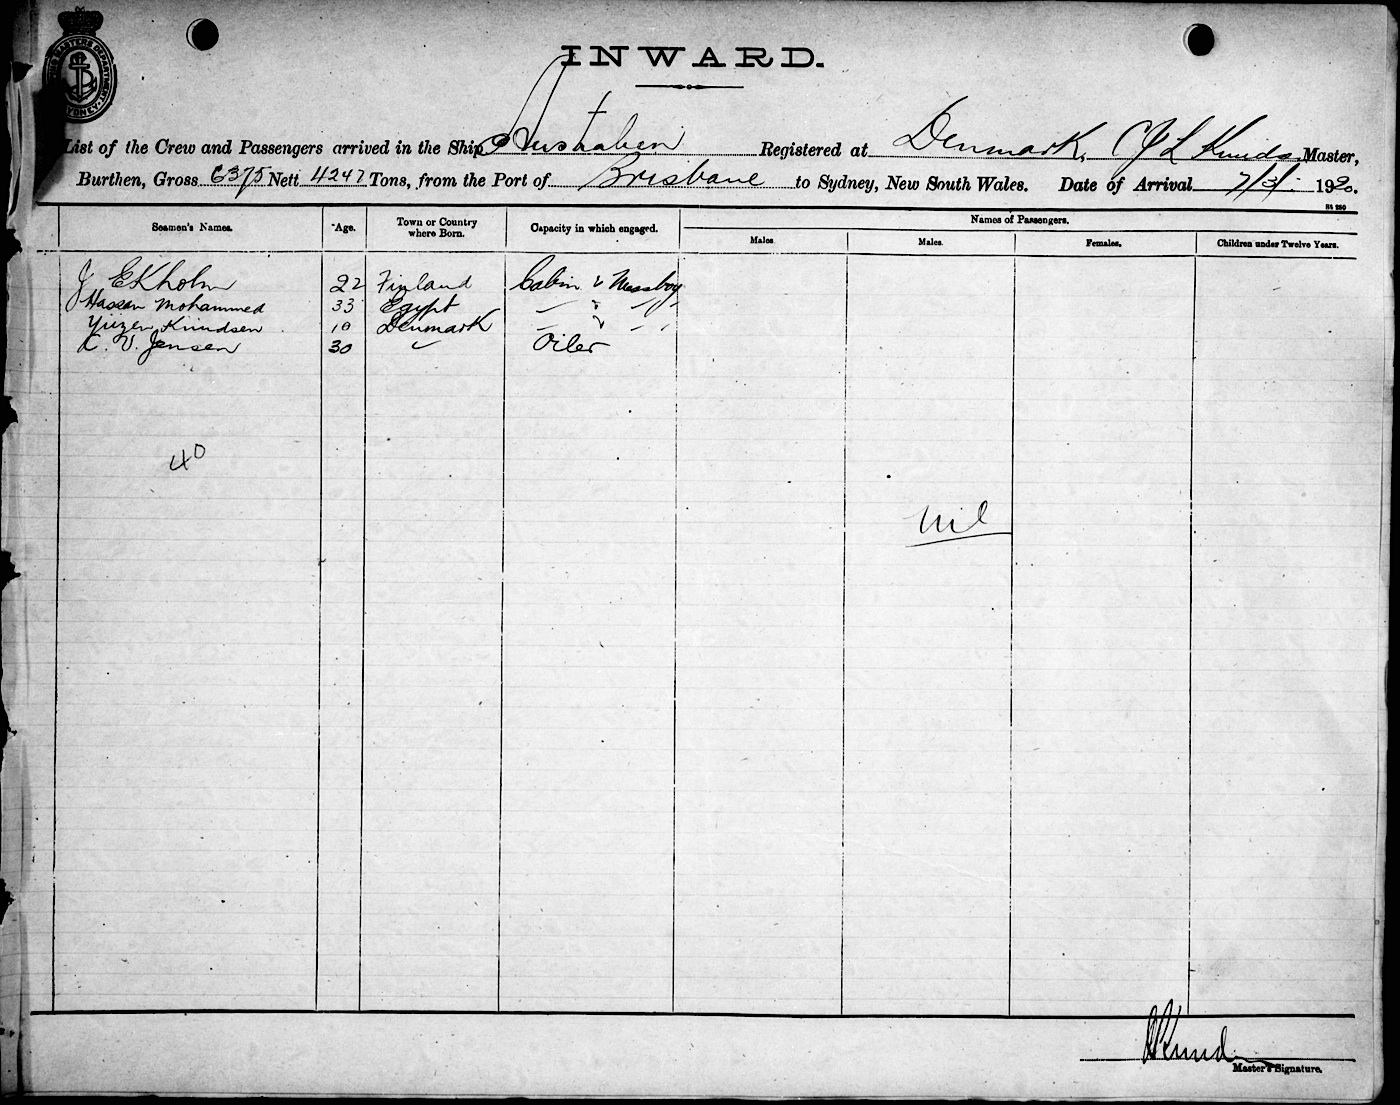 INWARD.
List of the Crew and Passengers arrived in the Ship Australien Registered at Denmark, L Knudsen Master,
Burthen, Gross 6375 Nett 4247 Tons, from the Port of Brisbane to Sydney, New South Wales. Date of Arrival 7/3/ 1920.
Seamen's Names. Age. Town or Country where Born. Capacity in which engaged. Names of Passengers.
Males Males. Females. Children under Twelve Years.
J Ekholm 22 Finland Cabin & Messboy
Hassan Mohammed 33 Egypt " " "
Knudsen 18 Denmark " " "
V. Jensen 30 " Oiler
40
nil
Knudsen
Master's Signature.